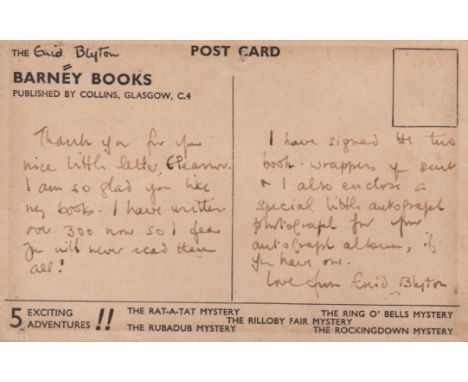 THE Enid Blyton
BARNEY BOOKS
PUBLISHED BY COLLINS, GLASGOW, C.4
POST CARD
Thank you for your
nice little letter,
I am so glad you like
my books. I have written
over 300 now so I fear
you will never read them
all!
I have signed the two
book-wrappers you sent
& I also enclose a
special little autograph
photograph for your
autograph album, if
you have one.
Love from Enid Blyton
5 EXCITING
ADVENTURES !!
THE RAT-A-TAT MYSTERY
THE RING O' BELLS MYSTERY
THE RILLOBY FAIR MYSTERY
THE RUBADUB MYSTERY
THE ROCKINGDOWN MYSTERY